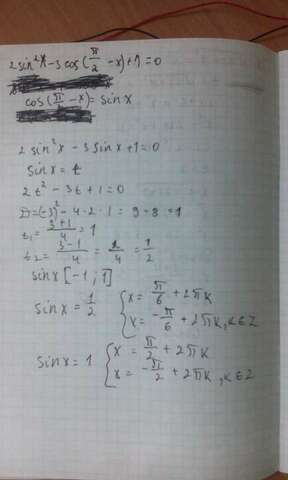 2sin²x-3cos(π/2-x)+1=0
cos(π/2-x)=sinx
2sin²x-3sinx+1=0
sinx=t
2t²-3t+1=0
D=(-3)²-4·2·1=9-8=1
t₁=3+1/4=1
t₂=3-1/4=2/4=1/2
sinx[-1;1]
sinx=1/2 { x=π/6+2πk
x=-π/6+2πk,k∈Z
sinx=1 { x=π/2+2πk
x=-π/2+2πk,k∈Z